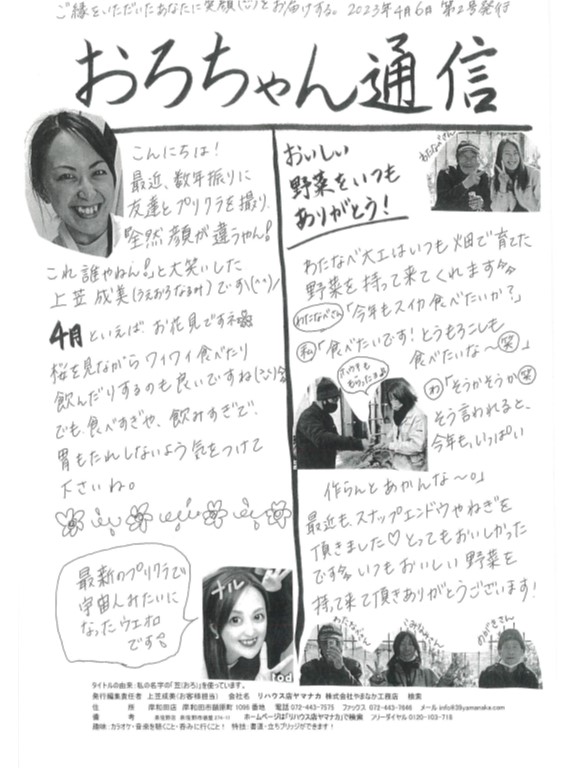 ご縁をいただいたあなたに笑顔(^^)をお届けする。2023年4月6日 第2号発行
おろちゃん通信
こんにちは!
最近、数年振りに
友達とプリクラを撮り、
「全然顔が違うやん!
これ誰やねん!」と大笑いした
上笠 成美(うえおろなるみ)です\(^^)/
4月といえばお花見ですネ
桜を見ながらワイワイ食べたり
飲んだりするのも良いですね(^^)
でも食べすぎや、飲みすぎで
胃もたれしないよう気をつけて
下さいね。
最新のプリクラで
宇宙人みたいに
なったウエオロ
です
ナル
tod
おいしい
野菜をいつも
ありがとう!
わたなべさん
わたなべ大工はいつも畑で育てた
野菜を持って来てくれます
わたなべさん「今年もスイカ食べたいか?」
私「食べたいです!とうもろこしも
食べたいな〜笑」
わ「そうかそうか笑
そう言われると、
今年も、いっぱい
作らんとあかんな〜。」
最近も、スナップエンドウやねぎを
頂きました♡とってもおいしかった
です いつもおいしい野菜を
持って来て頂きありがとうございます!
わたなべさん
タイトルの由来:私の名字の「笠(おろ)」を使っています。
発行編集責任者 上笠成美(お客様担当) 会社名 リハウス店ヤマナカ 株式会社やまなか工務店 検索
住 所 岸和田店 岸和田市額原町1096番地 電話 072-443-7575 ファックス 072-443-7646 メール info@39yamanaka.com
備 考 ホームページは「リハウス店ヤマナカ」で検索 フリーダイヤル 0120-103-718
趣味:カラオケ・音楽を聴くこと・呑みに行くこと! 特技:書道・立ちブリッジができます!